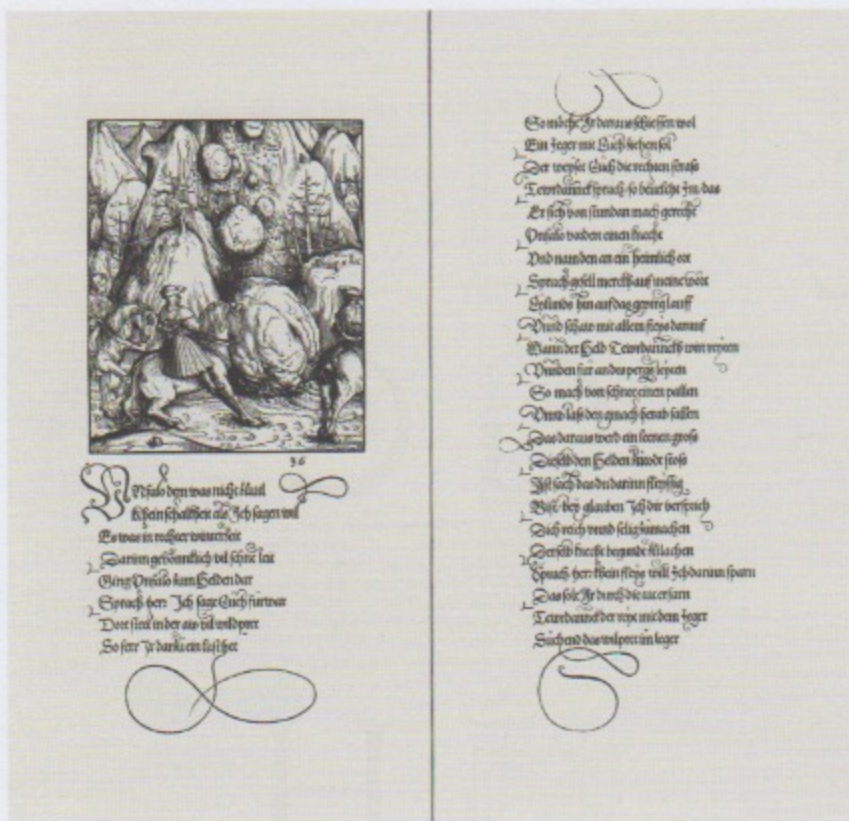 36
Unfalo dem was nicht zůuil
Khein schalkheit als Ich sagen wil
Es was in rechter winterzeit
Darinn gewonnlich vil schne leit
Ging Unfalo zum Helden dar
Sprach herr Ich sage Euch fürwar
Dort steet in der aw vil wildpret
So ferr Ir dartzů ein lust het
So möcht Ir daraus schiessen wol
Ein Jeger mit Euch ziehen sol
Der weyset Euch die rechten strass
Tewrdannck sprach so beuelcht Im das
Er sich von stundan mach gerecht
Unfalo vordert einen knecht
Und nam den an ein heimlich ort
Sprach gesell merckh auf meine wort
Eyllends hin auf das gepirg lauff
Unnd schaw mit allem fleyss darauf
Wann der Held Tewrdannckh wirt reyten
Unnden für an des pergs leyten
So mach von schne einen pallen
Unnd lass den gmach herab fallen
Das daraus werd ein leenen gross
Dieselb den Helden zůtodt stoss
Ist sach das du darinn fleyssig
Bist bey glauben Ich dir versprich
Dich reich vnnd selig zůmachen
Derselb knecht begunde zůlachen
Sprach herr khein fleyss will Ich darinn sparn
Das solt Ir durch die tat erfarn
Tewrdannckh der reyt mit dem Jeger
Sůchend das wilpret im leger